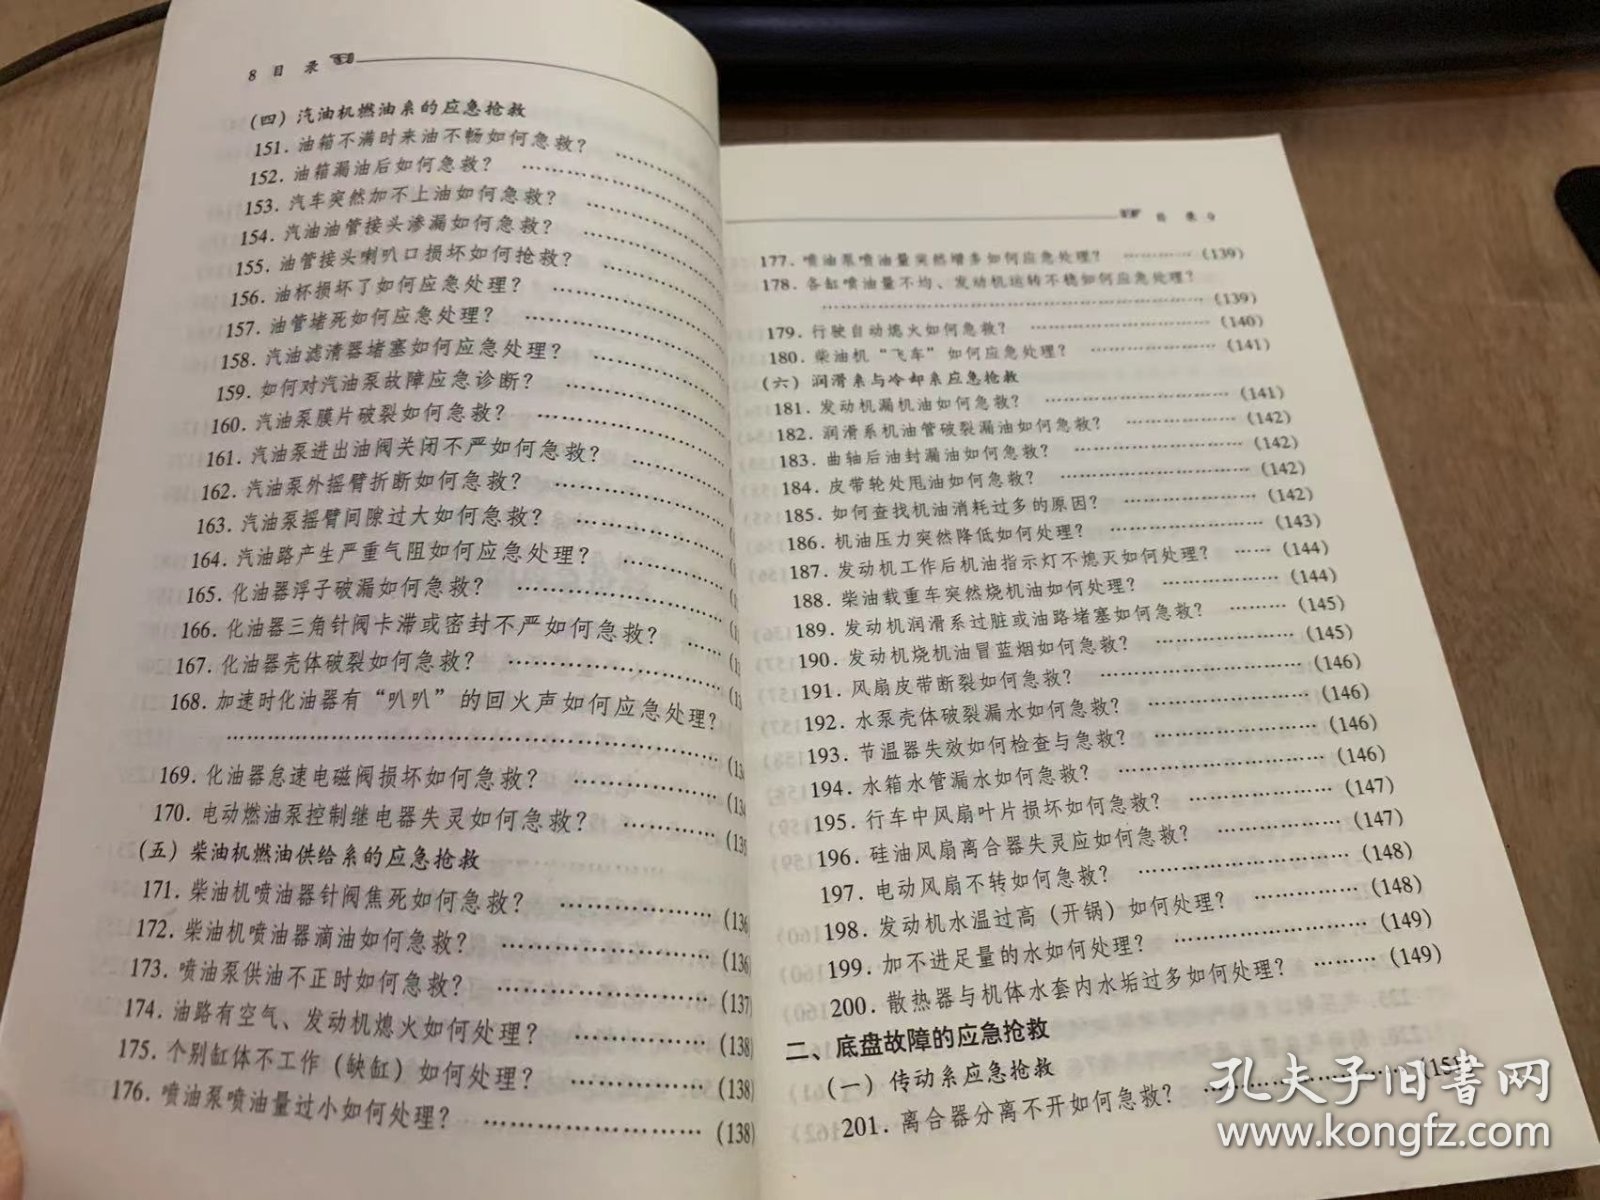 8 目 录
(四) 汽油机燃油系的应急抢救
151. 油箱不满时来油不畅如何急救? ……………
152. 油箱漏油后如何急救? ……………
153. 汽车突然加不上油如何急救? ……………
154. 汽油油管接头渗漏如何急救? ……………
155. 油管接头喇叭口损坏如何抢救? ……………
156. 油杯损坏了如何应急处理? ……………
157. 油管堵死如何应急处理? ……………
158. 汽油滤清器堵塞如何应急处理? ……………
159. 如何对汽油泵故障应急诊断? ……………
160. 汽油泵膜片破裂如何急救? ……………
161. 汽油泵进出油阀关闭不严如何急救? ………
162. 汽油泵外摇臂折断如何急救? ……………
163. 汽油泵摇臂间隙过大如何急救? ……………
164. 汽油路产生严重气阻如何应急处理? ………
165. 化油器浮子破漏如何急救? ……………
166. 化油器三角针阀卡滞或密封不严如何急救? ……
167. 化油器壳体破裂如何急救? ……………
168. 加速时化油器有“叭叭”的回火声如何应急处理?
……………………………………
169. 化油器怠速电磁阀损坏如何急救? …………… (134
170. 电动燃油泵控制继电器失灵如何急救? ………… (135
(五) 柴油机燃油供给系的应急抢救
171. 柴油机喷油器针阀焦死如何急救? …………… (136
172. 柴油机喷油器滴油如何急救? ………………… (136
173. 喷油泵供油不正时如何急救? ………………… (137)
174. 油路有空气、发动机熄火如何处理? …………… (138)
175. 个别缸体不工作(缺缸)如何处理? …………… (138)
176. 喷油泵喷油量过小如何处理? ………………… (138)
目 录 9
177. 喷油泵喷油量突然增多如何应急处理? ………… (139)
178. 各缸喷油量不均、发动机运转不稳如何应急处理?
…………………………………… (139)
179. 行驶自动熄火如何急救? …………………… (140)
180. 柴油机“飞车”如何应急处理? ……………… (141)
(六) 润滑系与冷却系应急抢救
181. 发动机漏机油如何急救? …………………… (141)
182. 润滑系机油管破裂漏油如何急救? …………… (142)
183. 曲轴后油封漏油如何急救? ………………… (142)
184. 皮带轮处甩油如何急救? …………………… (142)
185. 如何查找机油消耗过多的原因? ……………… (142)
186. 机油压力突然降低如何处理? ………………… (143)
187. 发动机工作后机油指示灯不熄灭如何处理? …… (144)
188. 柴油载重车突然烧机油如何处理? …………… (144)
189. 发动机润滑系过脏或油路堵塞如何急救? ……… (145)
190. 发动机烧机油冒蓝烟如何急救? ……………… (145)
191. 风扇皮带断裂如何急救? …………………… (146)
192. 水泵壳体破裂漏水如何急救? ………………… (146)
193. 节温器失效如何检查与急救? ………………… (146)
194. 水箱水管漏水如何急救? …………………… (146)
195. 行车中风扇叶片损坏如何急救? ……………… (147)
196. 硅油风扇离合器失灵应如何急救? …………… (147)
197. 电动风扇不转如何急救? …………………… (148)
198. 发动机水温过高(开锅)如何处理? …………… (148)
199. 加不进足量的水如何处理? ………………… (149)
200. 散热器与机体水套内水垢过多如何处理? ……… (149)
二、底盘故障的应急抢救
(一) 传动系应急抢救
201. 离合器分离不开如何急救? ……………………
孔夫子旧書网
www.kongfz.com